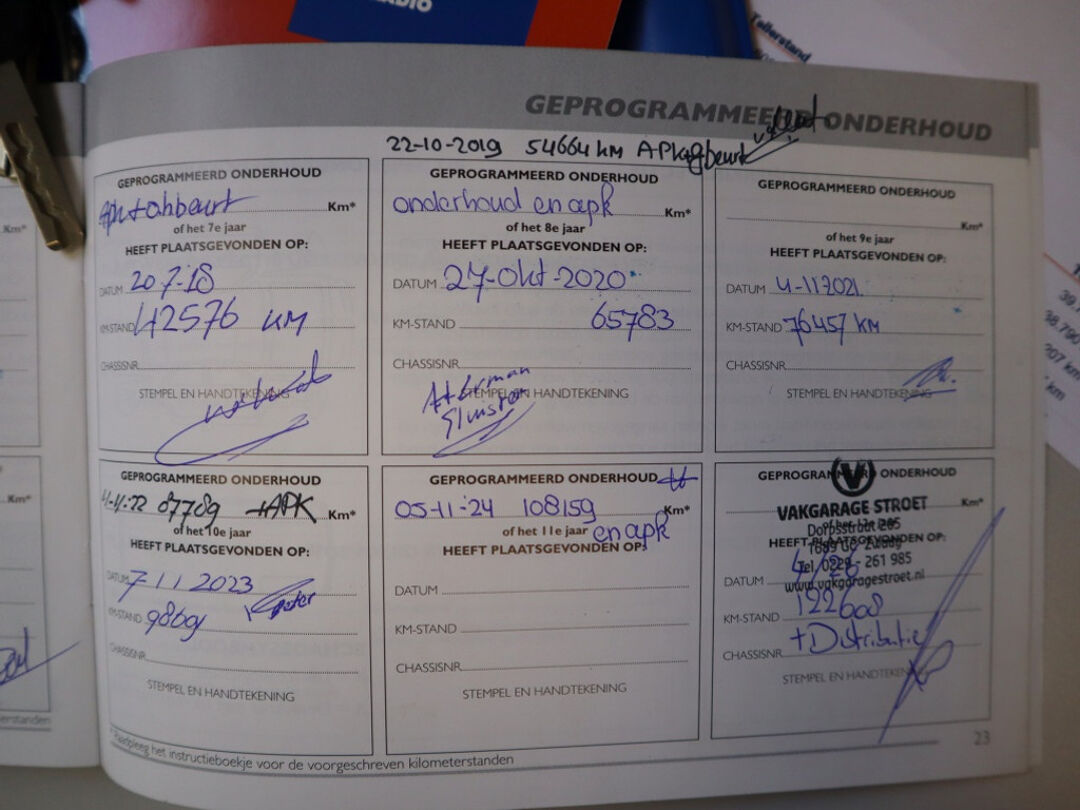 DIO
Tellerstand
GEPROGRAMMEERD ONDERHOUD
22-10-2019 54664 KM APK
GEPROGRAMMEERD ONDERHOUD
Km*
of het 7e jaar
HEEFT PLAATSGEVONDEN OP:
DATUM 20.7.18
KM-STAND 42576 KM
CHASSISNR.
STEMPEL EN HANDTEKENING
GEPROGRAMMEERD ONDERHOUD
onderhoud en apk Km*
of het 8e jaar
HEEFT PLAATSGEVONDEN OP:
DATUM 27-Okt-2020
KM-STAND 65783
CHASSISNR.
STEMPEL EN HANDTEKENING
GEPROGRAMMEERD ONDERHOUD
Km*
of het 9e jaar
HEEFT PLAATSGEVONDEN OP:
DATUM 4-11 2021
KM-STAND 76457 KM
CHASSISNR.
STEMPEL EN HANDTEKENING
GEPROGRAMMEERD ONDERHOUD
87789 +APK Km*
of het 10e jaar
HEEFT PLAATSGEVONDEN OP:
DATUM 7 11 2023
KM-STAND
CHASSISNR.
STEMPEL EN HANDTEKENING
GEPROGRAMMEERD ONDERHOUD
05-11-24 108159 Km*
of het 11e jaar en apk
HEEFT PLAATSGEVONDEN OP:
DATUM
KM-STAND
CHASSISNR.
STEMPEL EN HANDTEKENING
GEPROGRAMMEERD ONDERHOUD
VAKGARAGE STROET
Km*
Dorpsstraat 265
HEEFT PLAATSGEVONDEN OP:
Tel. 0229 - 261 985
www.vakgaragestroet.nl
DATUM
KM-STAND 122608
+Distributie
CHASSISNR.
STEMPEL EN HANDTEKENING
* Raadpleeg het instructieboekje voor de voorgeschreven kilometerstanden
23
Km*
Km*